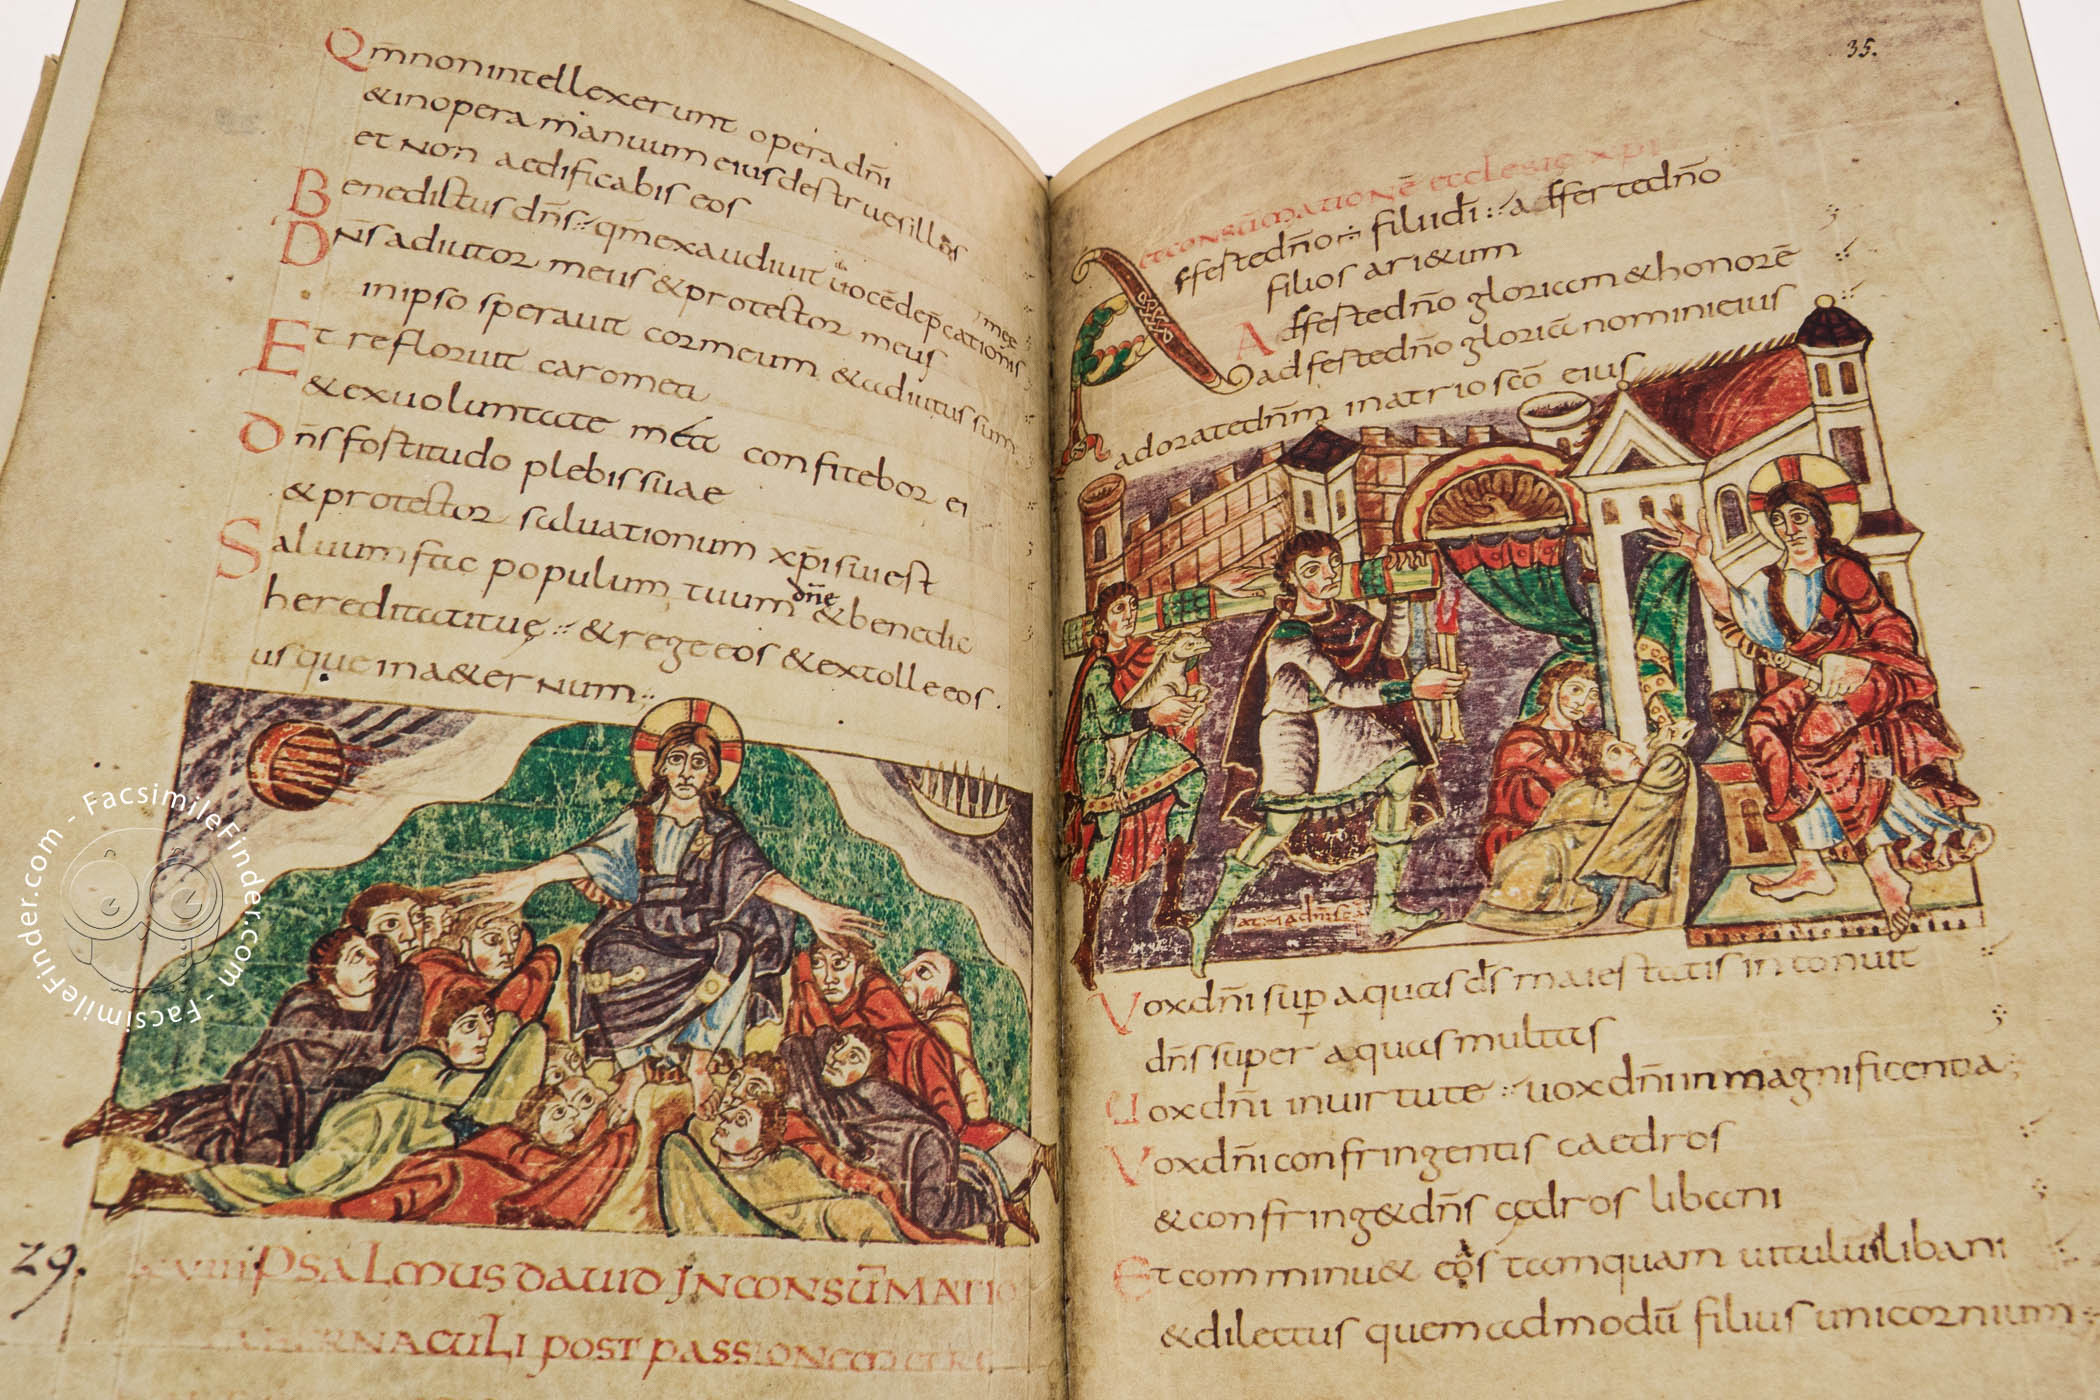 Qm̄ non intellexerunt opera dn̄i
& in opera manuum eius destrues illos
et non aedificabis eos
Benedictus dn̄s qm̄ exaudiuit uocē dep̄cationis meę
Dn̄s adiutor meus & protector meus
in ipso sperauit cor meum & adiutus sum
Et refloruit caro mea
& ex uoluntate mea confitebor ei
Dn̄s fortitudo plebis suae
& protector saluationum xp̄i sui est
Saluum fac populum tuum dn̄e & benedic
hereditati tuę & rege eos & extolle eos
usque in a&ernum
29.
XVIII Psalmus dauid In consūmatio
tabernaculi post passionem
35.
et consūmationē ecclesię xpi
Affertedn̄o filii dī adfertedn̄o
filios ari&um
Adfertedn̄o gloriam & honorē
adfertedn̄o gloriā nomini eius
adoratedn̄m in atrio scō eius
Vox dn̄i sup aquas ds̄ maiestatis intonuit
dn̄s super aquas multas
Uox dn̄i in uirtute uox dn̄i in magnificentia
Vox dn̄i confringentis caedros
& confring& dn̄s cędros libani
Et comminu& eos tamquam uitulū libani
& dilectus quemadmodū filius unicornium
FacsimileFinder.com - FacsimileFinder.com - FacsimileFinder.com